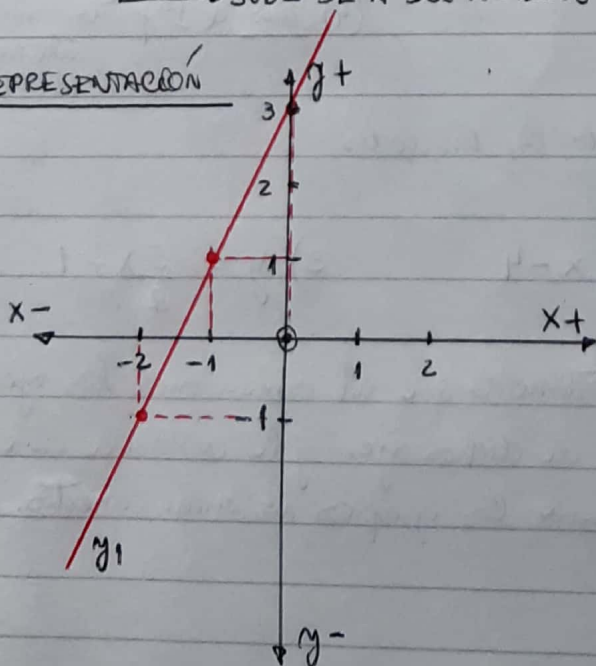 REPRESENTACIÓN
y+
3
2
1
x-
x+
-2 -1 1 2
-1
y1
y-